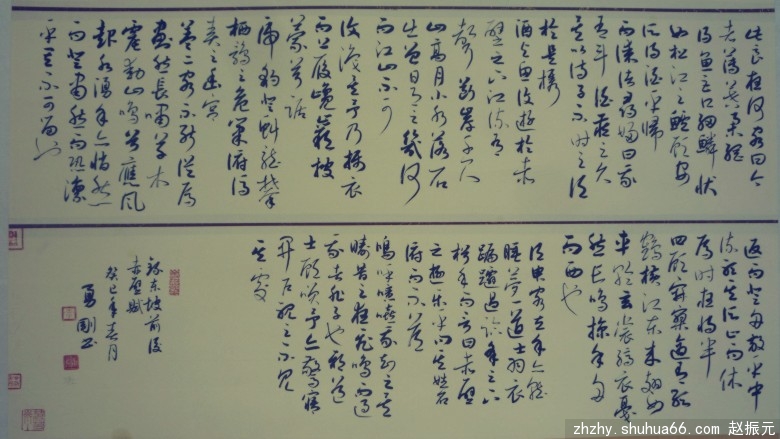 此良夜何客曰今
者薄暮举网
得鱼巨口细鳞状
如松江之鲈顾安
所得酒乎归
而谋诸妇妇曰我
有斗酒藏之久
矣以待子不时之须
於是携
酒与鱼復遊於赤
壁之下江流有
声断岸千尺
山高月小水落石
出曾日月之幾何
而江山不可
復识矣予乃摄衣
而上履巉巖披
蒙茸踞
虎豹登虬龙攀
栖鹘之危巢俯冯
夷之幽宫
盖二客不能从焉
划然长啸草木
震动山鸣谷應风
起水涌予亦悄然
而悲肃然而恐凛
乎其不可留也
返而登舟放乎中
流听其所止而休
焉时夜将半
四顾寂寥适有孤
鹤横江东来翅如
车轮玄裳缟衣戛
然长鸣掠予舟
而西也
须臾客去予亦就
睡梦道士羽衣
蹁跹过临皋之下
揖予而言曰赤壁
之遊乐乎问其姓名
俯而不答
呜呼噫嘻我知之矣
畴昔之夜飞鸣而过
我者非子也耶道
士顾笑予亦惊寤
开户视之不见
其处
录东坡前後
赤壁赋
癸巳年春月
勇刚书
zhzhy.shuhua66.com 赵振元